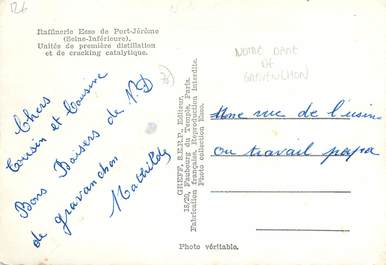 126
Raffinerie Esso de Port-Jérôme
(Seine-Inférieure).
Unités de première distillation
et de cracking catalytique.
NOTRE DAME
DE
GRAVENCHON
Chers
Cousin et Cousine
Bons Baisers de N.D
de gravanchon
Mathilde
GREFF, S.E.R.P., Editeur,
18/20, Faubourg du Temple, Paris.
Fabrication française. Reproduction interdite.
Photo collection Esso.
Une vue de l'usine
ou travail papa
Photo véritable.